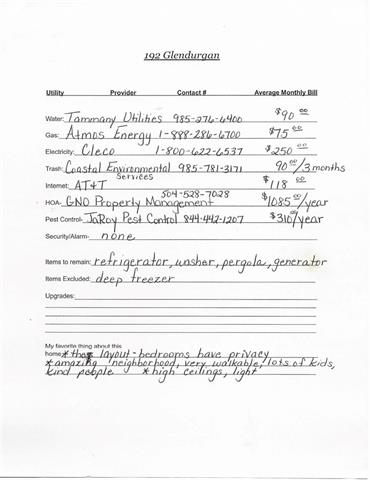 192 Glendurgan
Utility Provider Contact # Average Monthly Bill
Water: Tammany Utilities 985-276-6400 $90 00
Gas: Atmos Energy 1-888-286-6700 $75 00
Electricity: Cleco 1-800-622-6537 $250 00
Trash: Coastal Environmental Services 985-781-3171 90 00/3 months
Internet: AT&T $118 00
HOA- GNO Property Management 504-528-7028 $1085 00/year
Pest Control- JaRoy Pest Control 844-442-1207 $310 00/year
Security/Alarm- none
Items to remain: refrigerator, washer, pergola, generator
Items Excluded: deep freezer
Upgrades:
My favorite thing about this
home * the layout - bedrooms have privacy
* amazing neighborhood, very walkable, lots of kids,
kind people * high ceilings, light